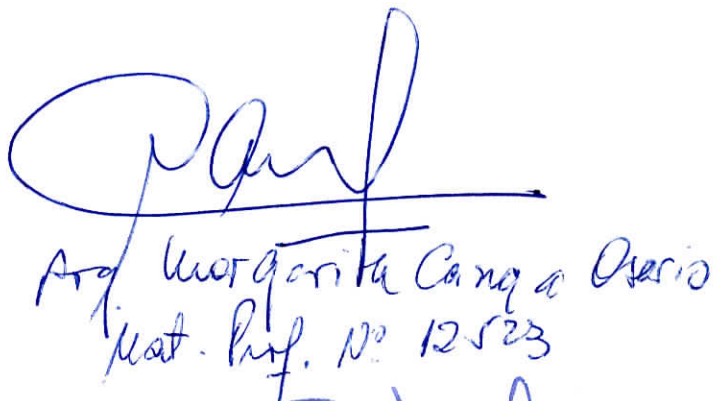 Arq. Margarita Canga Osorio
Mat. Prof. Nº 12523